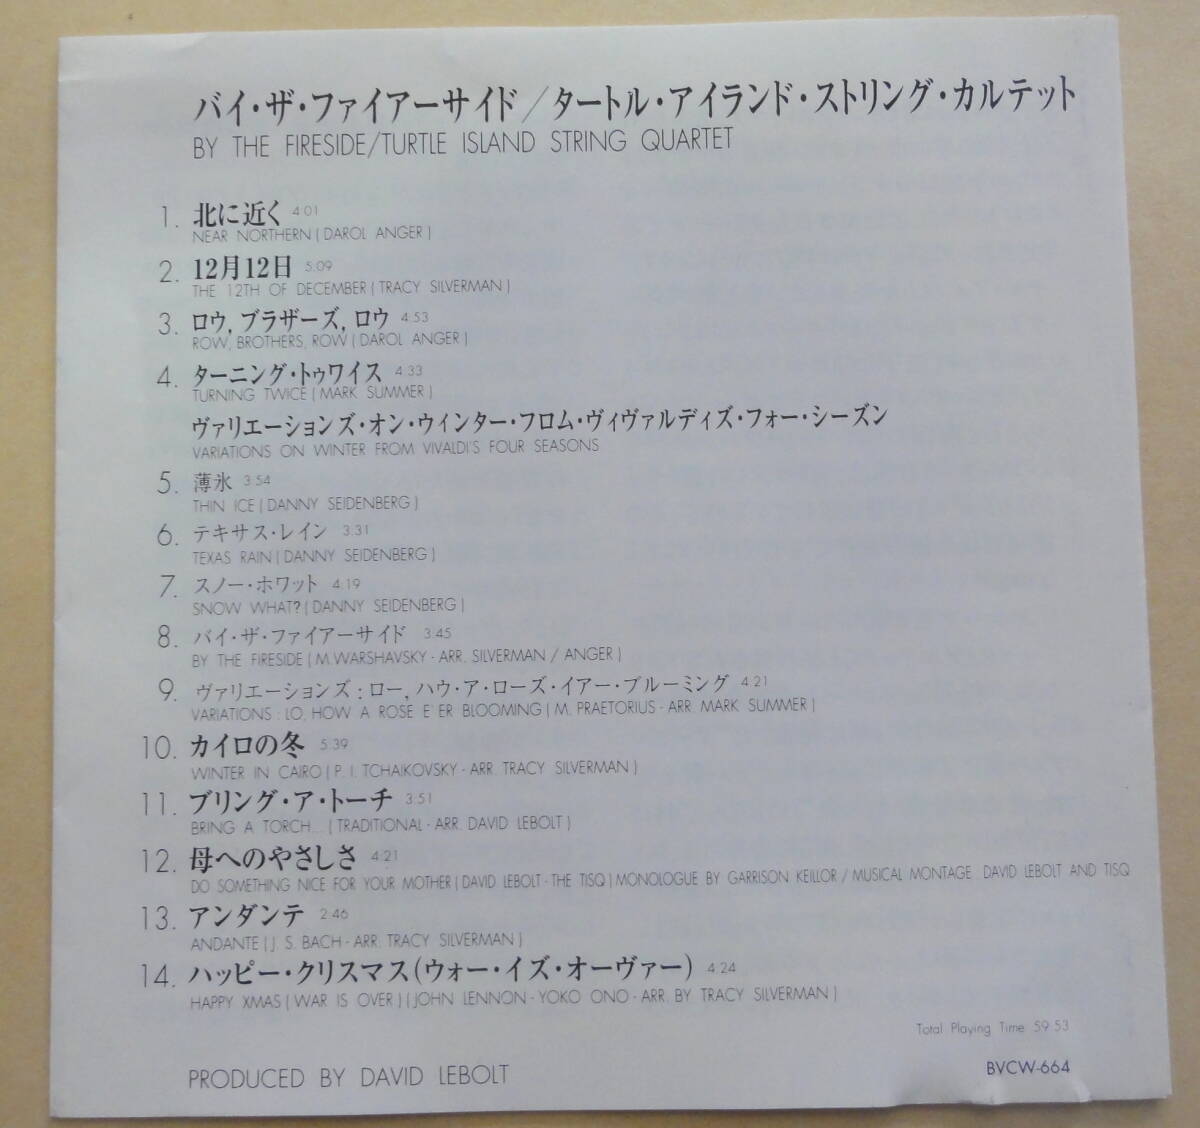 バイ・ザ・ファイアーサイド/タートル・アイランド・ストリング・カルテット
BY THE FIRESIDE/TURTLE ISLAND STRING QUARTET
1. 北に近く 4:01
NEAR NORTHERN (DAROL ANGER)
2. 12月12日 5:09
THE 12TH OF DECEMBER (TRACY SILVERMAN)
3. ロウ, ブラザーズ, ロウ 4:53
ROW, BROTHERS, ROW (DAROL ANGER)
4. ターニング・トゥワイス 4:33
TURNING TWICE (MARK SUMMER)
ヴァリエーションズ・オン・ウィンター・フロム・ヴィヴァルディズ・フォー・シーズン
VARIATIONS ON WINTER FROM VIVALDI'S FOUR SEASONS
5. 薄氷 3:54
THIN ICE (DANNY SEIDENBERG)
6. テキサス・レイン 3:31
TEXAS RAIN (DANNY SEIDENBERG)
7. スノー・ホワット 4:19
SNOW WHAT? (DANNY SEIDENBERG)
8. バイ・ザ・ファイアーサイド 3:45
BY THE FIRESIDE (M.WARSHAVSKY - ARR. SILVERMAN / ANGER)
9. ヴァリエーションズ : ロー, ハウ・ア・ローズ・イアー・ブルーミング 4:21
VARIATIONS : LO, HOW A ROSE E'ER BLOOMING (M. PRAETORIUS - ARR. MARK SUMMER)
10. カイロの冬 5:39
WINTER IN CAIRO (P. I. TCHAIKOVSKY - ARR. TRACY SILVERMAN)
11. ブリング・ア・トーチ 3:51
BRING A TORCH... (TRADITIONAL - ARR. DAVID LEBOLT)
12. 母へのやさしさ 4:21
DO SOMETHING NICE FOR YOUR MOTHER (DAVID LEBOLT - THE TISQ) MONOLOGUE BY GARRISON KEILLOR / MUSICAL MONTAGE DAVID LEBOLT AND TISQ
13. アンダンテ 2:46
ANDANTE (J. S. BACH - ARR. TRACY SILVERMAN)
14. ハッピー・クリスマス(ウォー・イズ・オーヴァー) 4:24
HAPPY XMAS (WAR IS OVER) (JOHN LENNON - YOKO ONO - ARR. BY TRACY SILVERMAN)
Total Playing Time 59:53
PRODUCED BY DAVID LEBOLT
BVCW-664